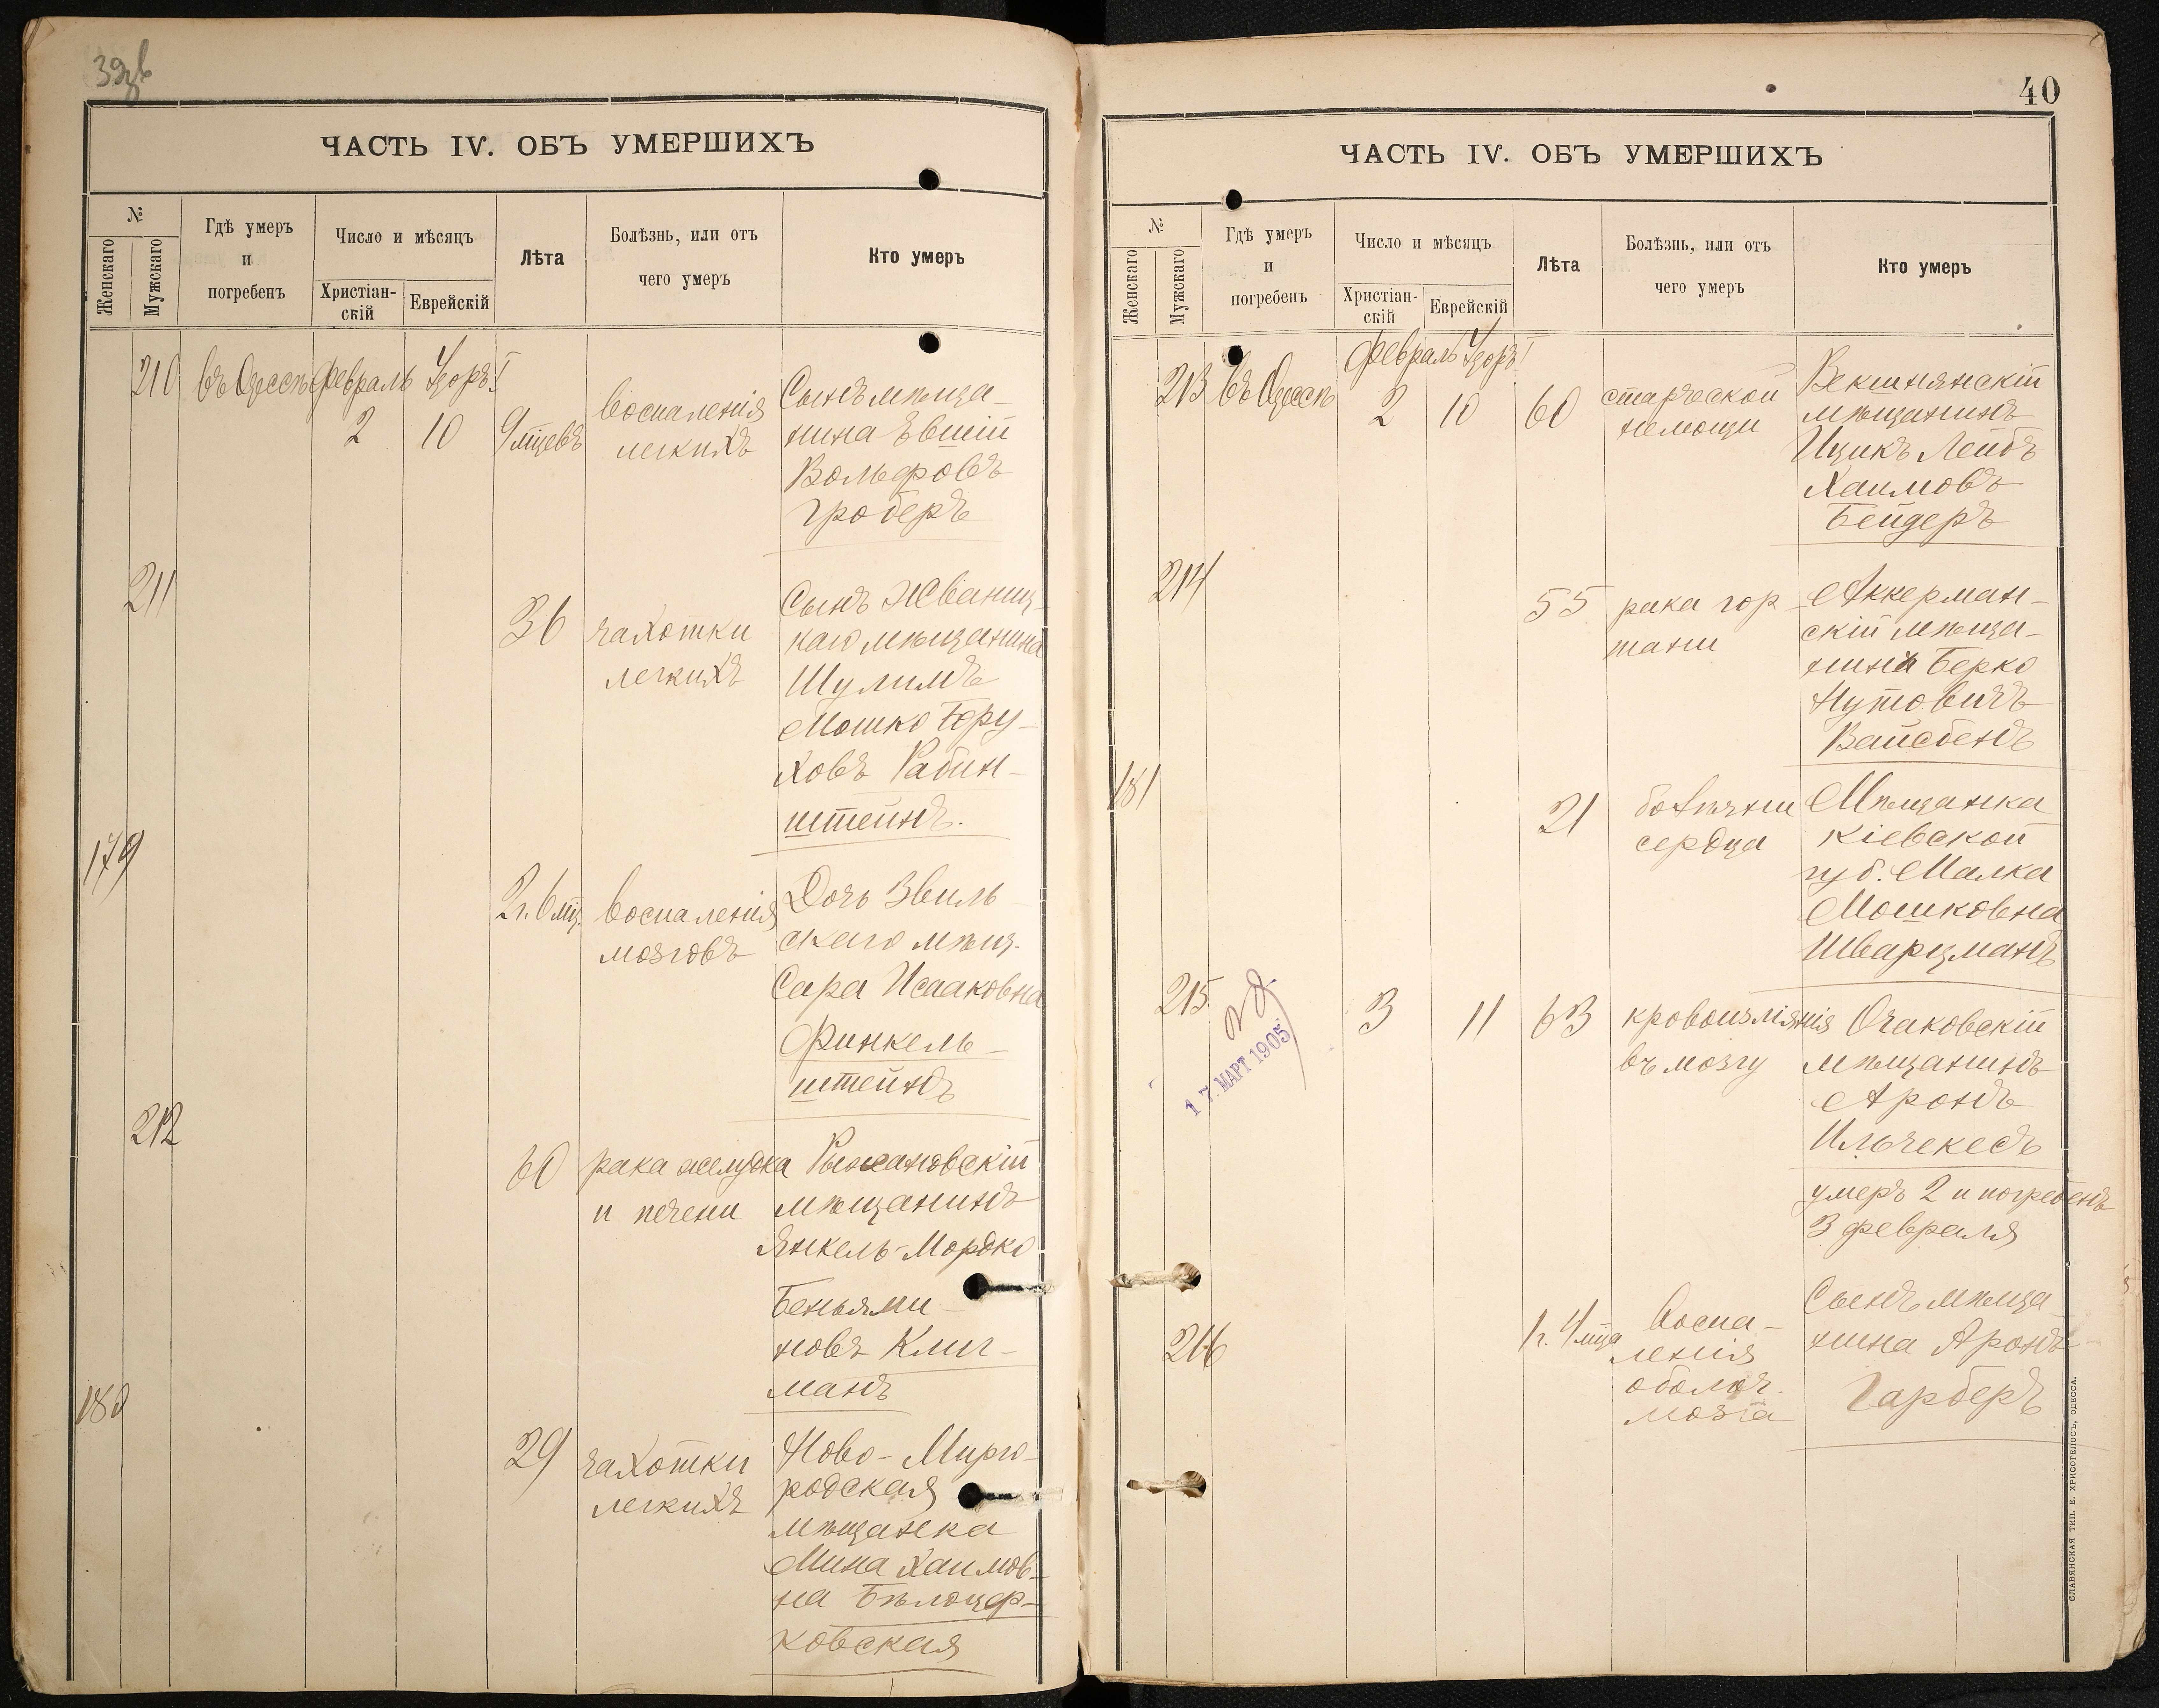 ЧАСТЬ IV. ОБЪ УМЕРШИХЪ
№
Женскаго
Мужскаго
Гдѣ умеръ
и
погребенъ
Число и мѣсяцъ
Христіан-
скій
Еврейскій
Лѣта
Болѣзнь, или отъ
чего умеръ
Кто умеръ
210 въ Одессѣ Февраль Адоръ I
2 10 9 мцевъ
воспаленія
легкихъ
Сынъ мѣща-
нина Евшій
Вольфовъ
Гроберъ
211
36
чахотки
легкихъ
Сынъ Жваниц-
каго мѣщанина
Шулимъ
Мошко Бору-
ховъ Рабин-
штейнъ.
179
2 г. 6 мц.
воспаленія
мозговъ
Дочь Звиль-
скаго мѣщ.
Сара Исааковна
Финкель-
штейнъ
212
60
рака желудка
и печени
Рыжановскій
мѣщанинъ
Янкель-Мордко
Беньями-
новъ Клиг-
манъ
180
29
чахотки
легкихъ
Ново-Мирго-
родская
мѣщанка
Мина Хаимов-
на Бѣлоцер-
ковская
40
ЧАСТЬ IV. ОБЪ УМЕРШИХЪ
№
Женскаго
Мужскаго
Гдѣ умеръ
и
погребенъ
Число и мѣсяцъ
Христіан-
скій
Еврейскій
Лѣта
Болѣзнь, или отъ
чего умеръ
Кто умеръ
213 въ Одессѣ Февраль Адоръ I
2 10 60
старческой
немощи
Векшнянскій
мѣщанинъ
Ицикъ Лейбъ
Хаимовъ
Бейдеръ
214
55
рака гор-
тани
Аккерман-
скій мѣща-
нинъ Берко
Нутовичъ
Вайсбендъ
181
21
болѣзни
сердца
Мѣщанка
Кіевской
губ. Малка
Мошковна
Шварцманъ
215
17. МАРТ 1905
3 11 63
кровоизліянія
въ мозгу
Очаковскій
мѣщанинъ
Аронъ
Ильчекесъ
умеръ 2 и погребенъ
3 февраля
216
1 г. 4 мца
Воспа-
ленія
оболоч.
мозга
Сынъ мѣща-
нина Аронъ
Гарберъ
СЛАВЯНСКАЯ ТИП. Е. ХРИСОГЕЛОСЪ, ОДЕССА.